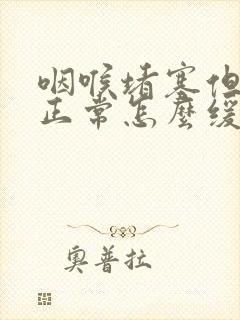 咽喉堵塞但
正常怎麼緩
奧普拉